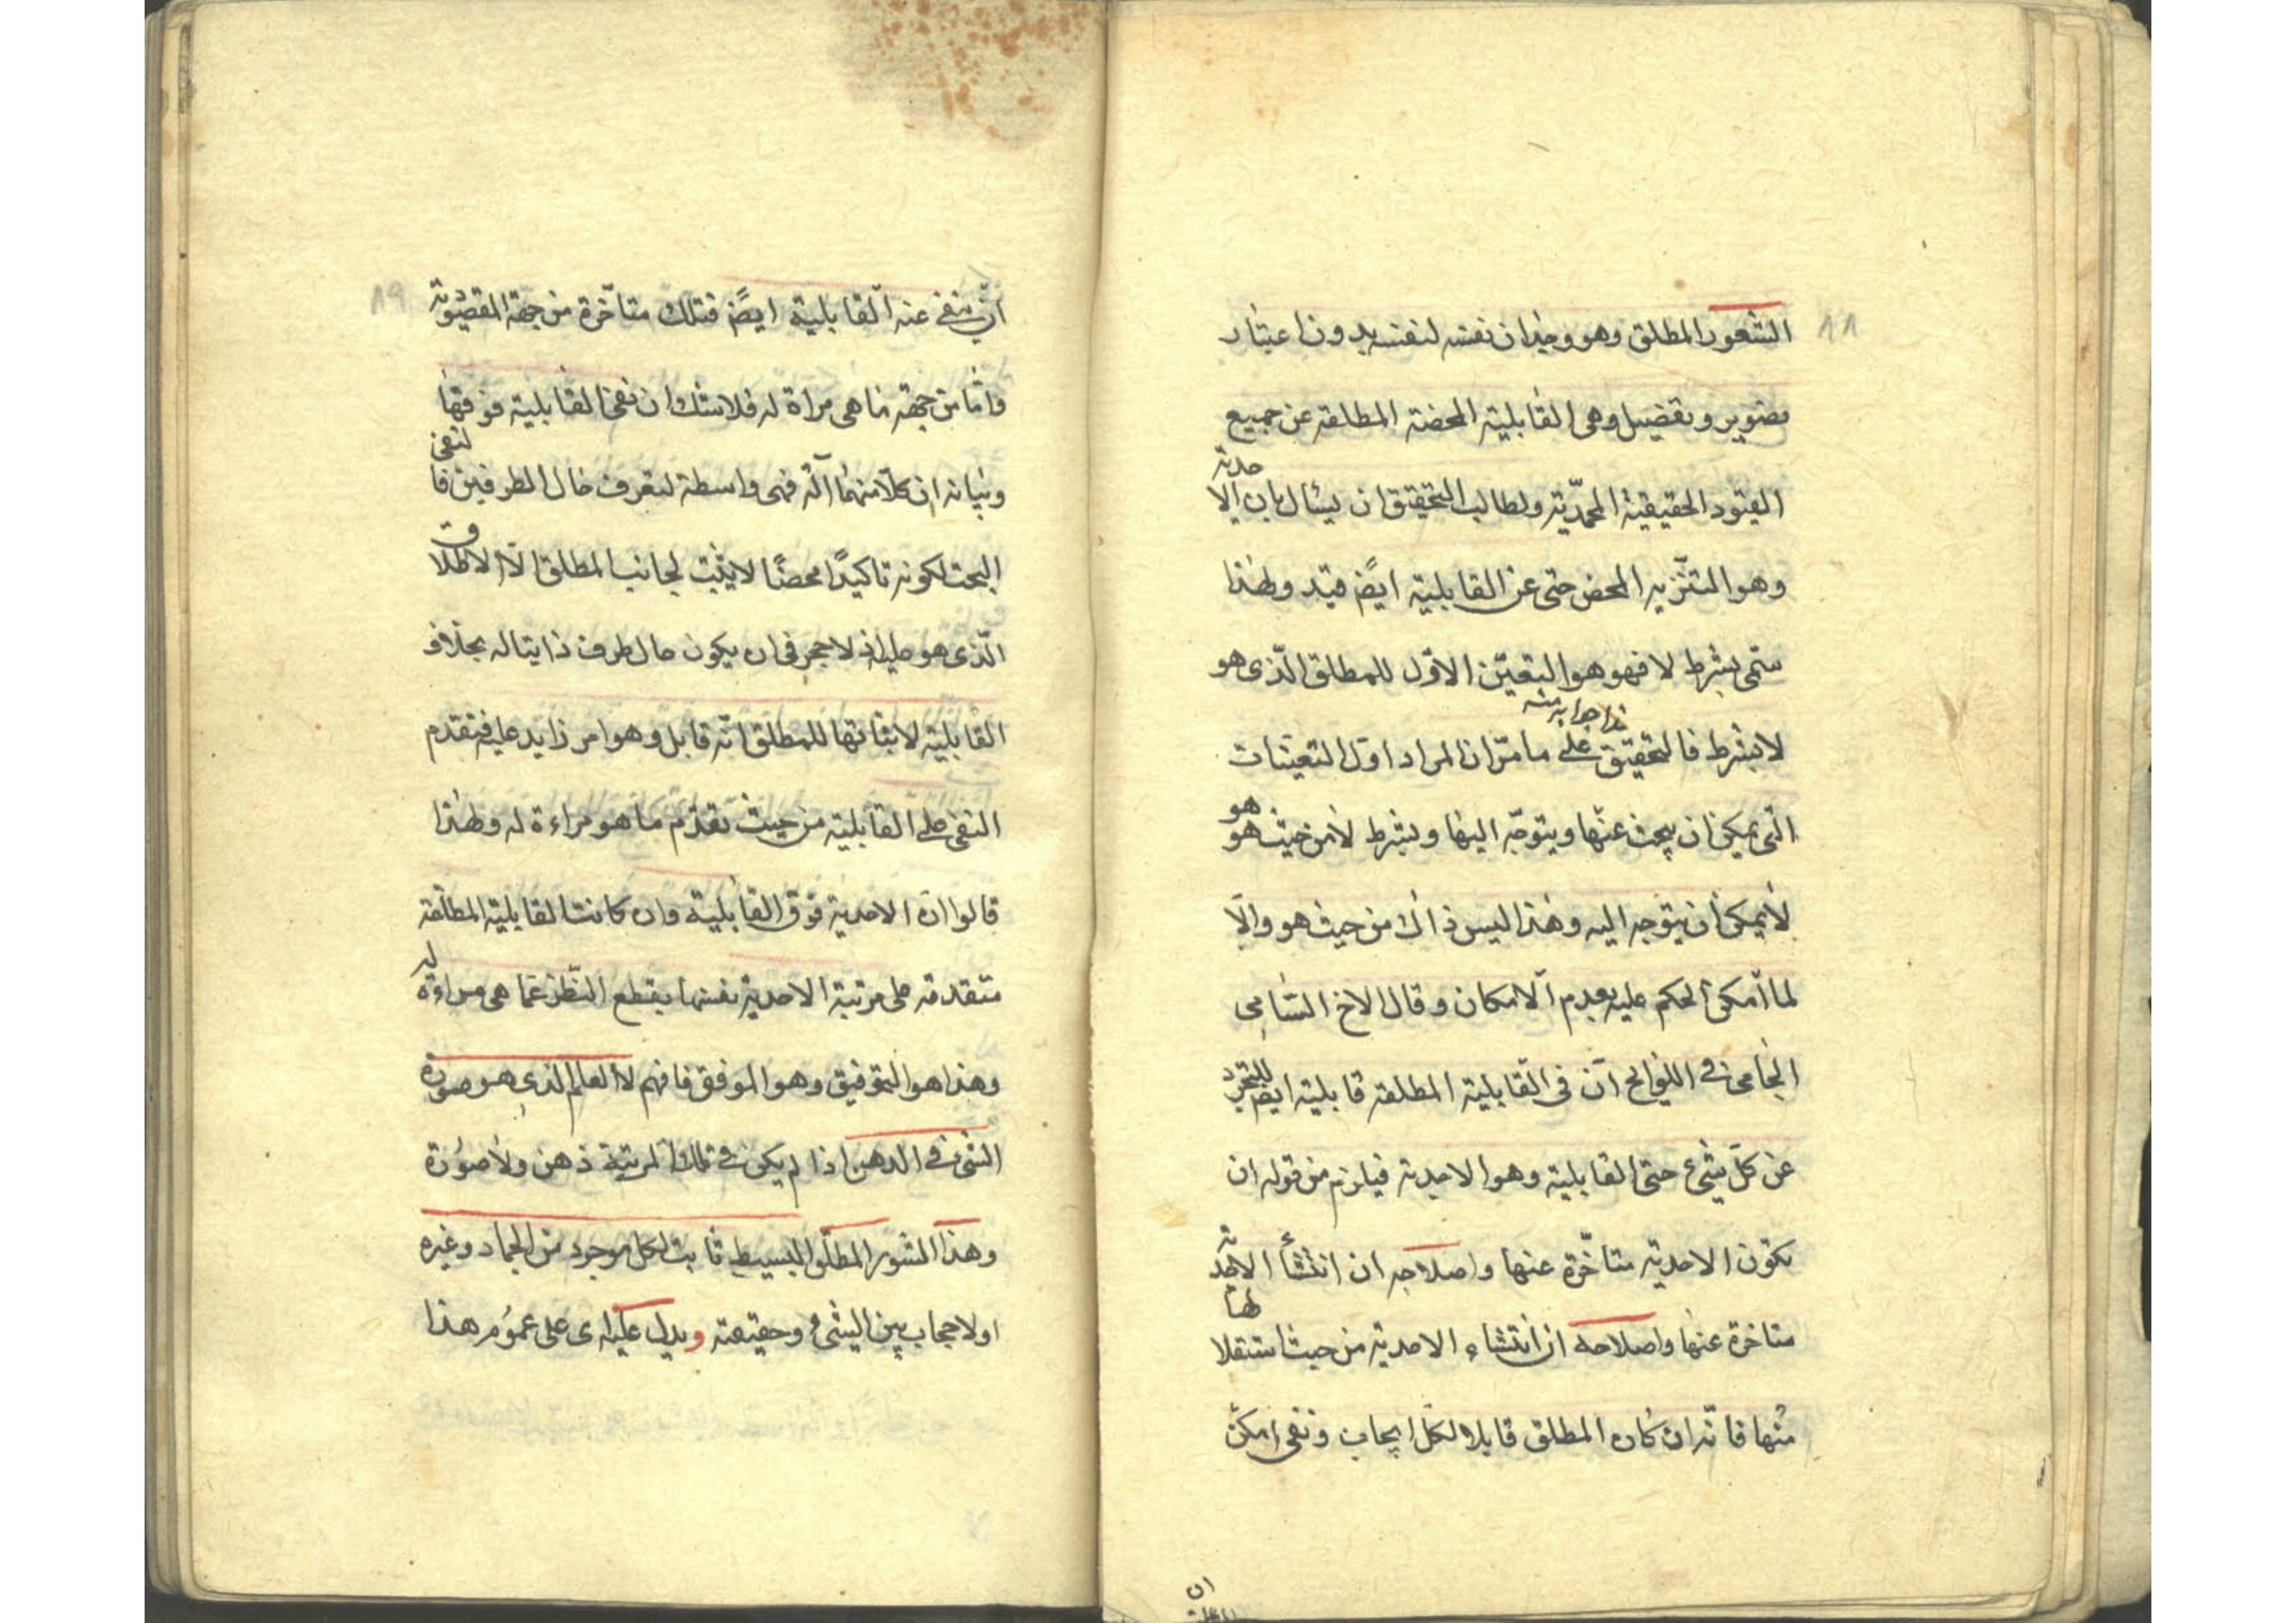 ٨٨
الشعور المطلق وهو وجدان نفسه لنفسه بدون اعتبار
تصوير وتفصيل وهى القابلية المحضة المطلقة عن جميع
القيود الحقيقية المحمّدية ولطالب التحقيق ان يسال بان الا
حدية
وهو المتنزيه المحض حتى عن القابلية ايضً قيد ولهذا
سمّى بشرط لا فهو هو التعيّن الاوّل للمطلق الّذى هو
هذا جوابه منه
لا بشرط فالتحقيق على ما مرّ ان المراد اوّل التعيّنات
الّتى يمكن ان يبحث عنها ويتوجّه اليها وبشرط لا من حيث هو
هو
لا يمكن ان يتوجه اليه وهذا ليس ذاك من حيث هو والّا
لما امكن الحكم عليه بعدم الامكان وقال الاخ السّامى
الجامى فى اللوايح انّ فى القابلية المطلقة قابلية ايضً للتجرّد
عن كلّ شىء حتى القابلية وهو الاحدية فيلزم من قوله ان
تكون الاحدية متاخّرة عنها واصلاحه ان انتشأ الاحدية
متاخرة عنها واصلاحه ان انتشاء الاحدية من حيث استقلا
لها
منها فانّه ان كان المطلق قابلا لكل ايجاب ونفى امكن
ان
٨٩
ان ينفى عنه القابلية ايضً فتلك متاخّرة من جهة المقصودية
وامّا من جهة ما هى مراة له فلا شك ان نفى القابلية فوقها
وبيانه ان كلّا منهما آلة فهى واسطة لتعرف حال الطرفين فا
لنفى
البحت لكونه تاكيدًا محضًا لا يثبت لجانب المطلق الّا الاطلا
ق
الّذى هو عليه اذ لا حجر فى ان يكون حال طرف ذاتيا له بخلاف
القابلية لاثباتها للمطلق انّه قابل وهو امر زايد عليه فتقدم
النفى على القابلية من حيث تقدّم ما هو مراءة له ولهذا
قالوا ان الاحدية فوق القابلية وان كانت القابلية المطلقة
متقدمة على مرتبة الاحدية نفسها بقطع النّظر عمّا هى مراءة
له
وهذا هو التوفيق وهو الموفق فافهم لا العلم الذى هو صورة
الشىء فى الذهن اذا لم يكن فى تلك المرتبة ذهن ولا صورة
وهذا الشعور المطلق البسيط ثابت لكل موجود من الجماد وغيره
اولا حجاب بين الشىء وحقيقته ويدل عليه اى على عموم هذا